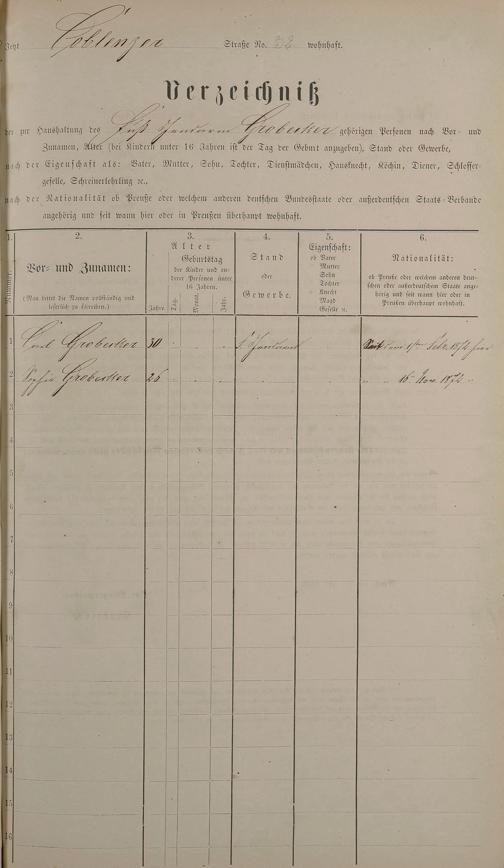 Jetzt Coblenzer Straße No. 32 wohnhaft.
Verzeichniß
der zur Haushaltung des Fuß Gendarm Grobecker gehörigen Personen nach Vor- und
Zunamen, Alter (bei Kindern unter 16 Jahren ist der Tag der Geburt anzugeben), Stand oder Gewerbe,
nach der Eigenschaft als: Vater, Mutter, Sohn, Tochter, Dienstmädchen, Hausknecht, Köchin, Diener, Schlosser-
geselle, Schreinerlehrling ec.,
nach der Nationalität ob Preuße oder welchem anderen deutschen Bundesstaate oder außerdeutschen Staats-Verbande
angehörig und seit wann hier oder in Preußen überhaupt wohnhaft.
1. 2. 3. 4. 5. 6.
Nummer.
Vor- und Zunamen:
(Man bittet die Namen vollständig und
leserlich zu schreiben.)
Alter
Geburtstag
der Kinder und an-
derer Personen unter
16 Jahren.
Jahre. Tag. Monat. Jahr.
Stand
oder
Gewerbe.
Eigenschaft:
ob Vater
Mutter
Sohn
Tochter
Knecht
Magd
Geselle u.
Nationalität:
ob Preuße oder welchem anderen deut-
schen oder außerdeutschen Staate ange-
hörig und seit wann hier oder in
Preußen überhaupt wohnhaft.
1 Carl Grobecker 30 Gendarm 1ten Febr. 1872 hier
2 Sophie Grobecker 26 " " 16 Nov. 1872 "
3
4
5
6
7
8
9
10
11
12
13
14
15
16